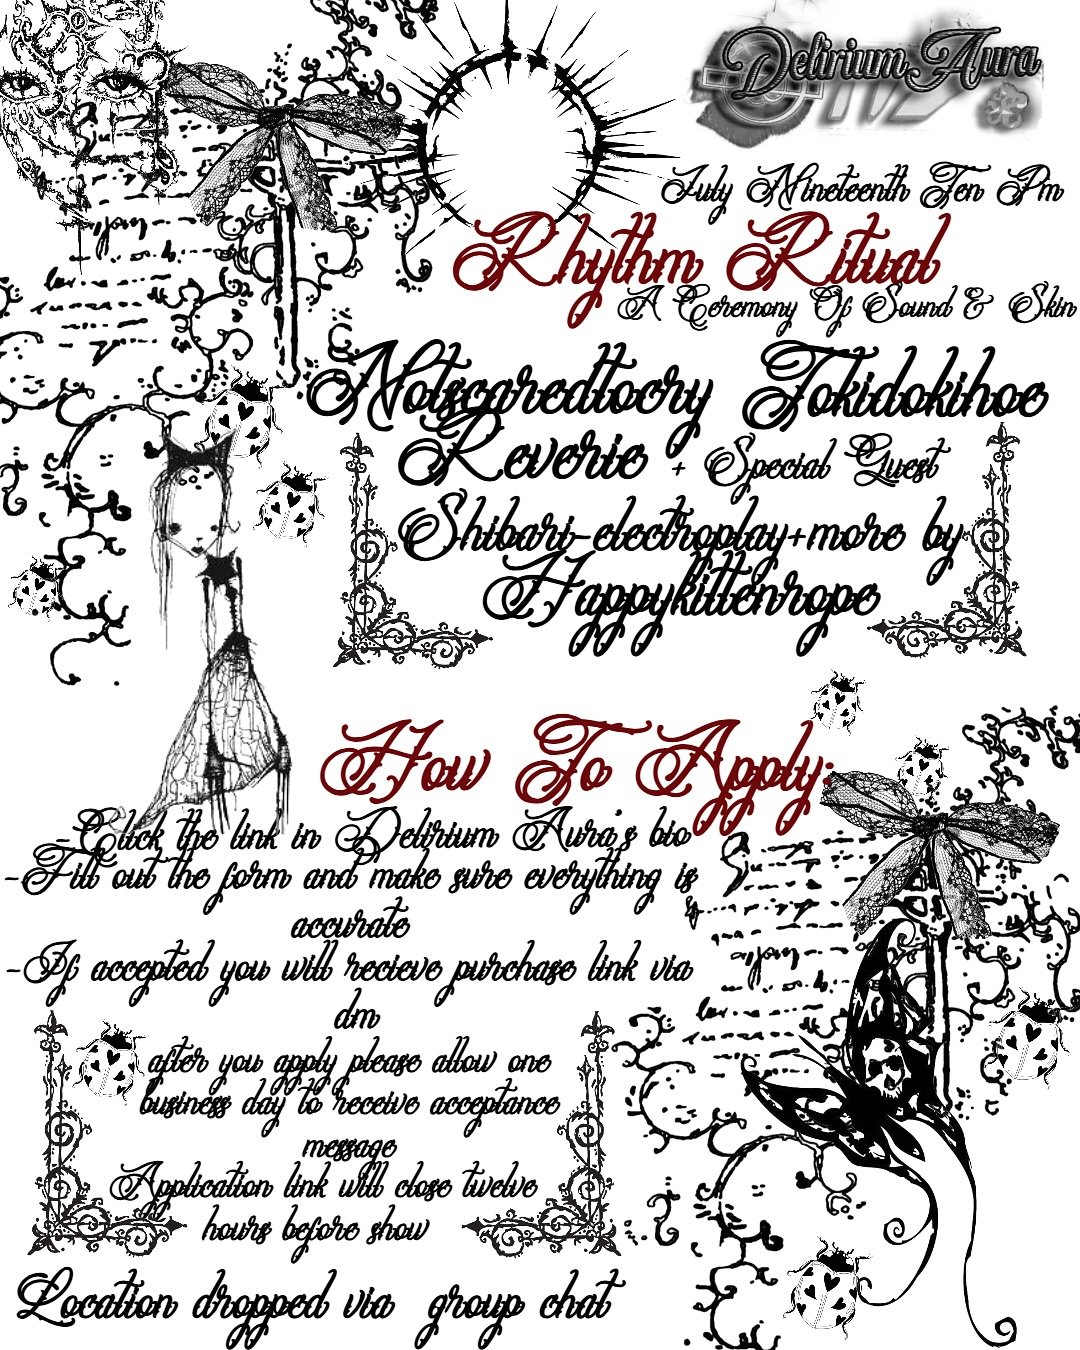 Delirium Aura
July Nineteenth Ten Pm
Rhythm Ritual
A Ceremony Of Sound & Skin
Notscaredtocry Tokidokihoe
Reverie + Special Guest
Shibari-electroplay+more by
Happykittenrope
How To Apply:
-Click the link in Delirium Aura's bio
-Fill out the form and make sure everything is
accurate
-If accepted you will recieve purchase link via
dm
after you apply please allow one
business day to receive acceptance
message
Application link will close twelve
hours before show
Location dropped via group chat